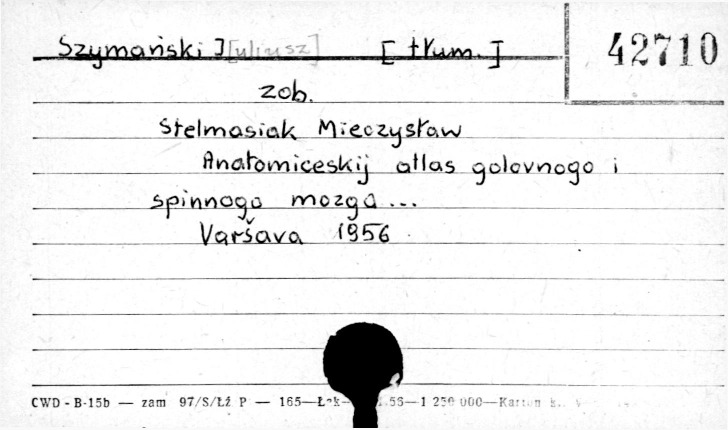 Szymański J[uliusz] [tłum.]
42710
zob.
Stelmasiak Mieczysław
Anatomiceskij atlas golovnogo i
spinnogo mozga...
Varšava 1956
CWD - B-15b — zam 97/S/Łź P — 165— 1 250 000—Karton